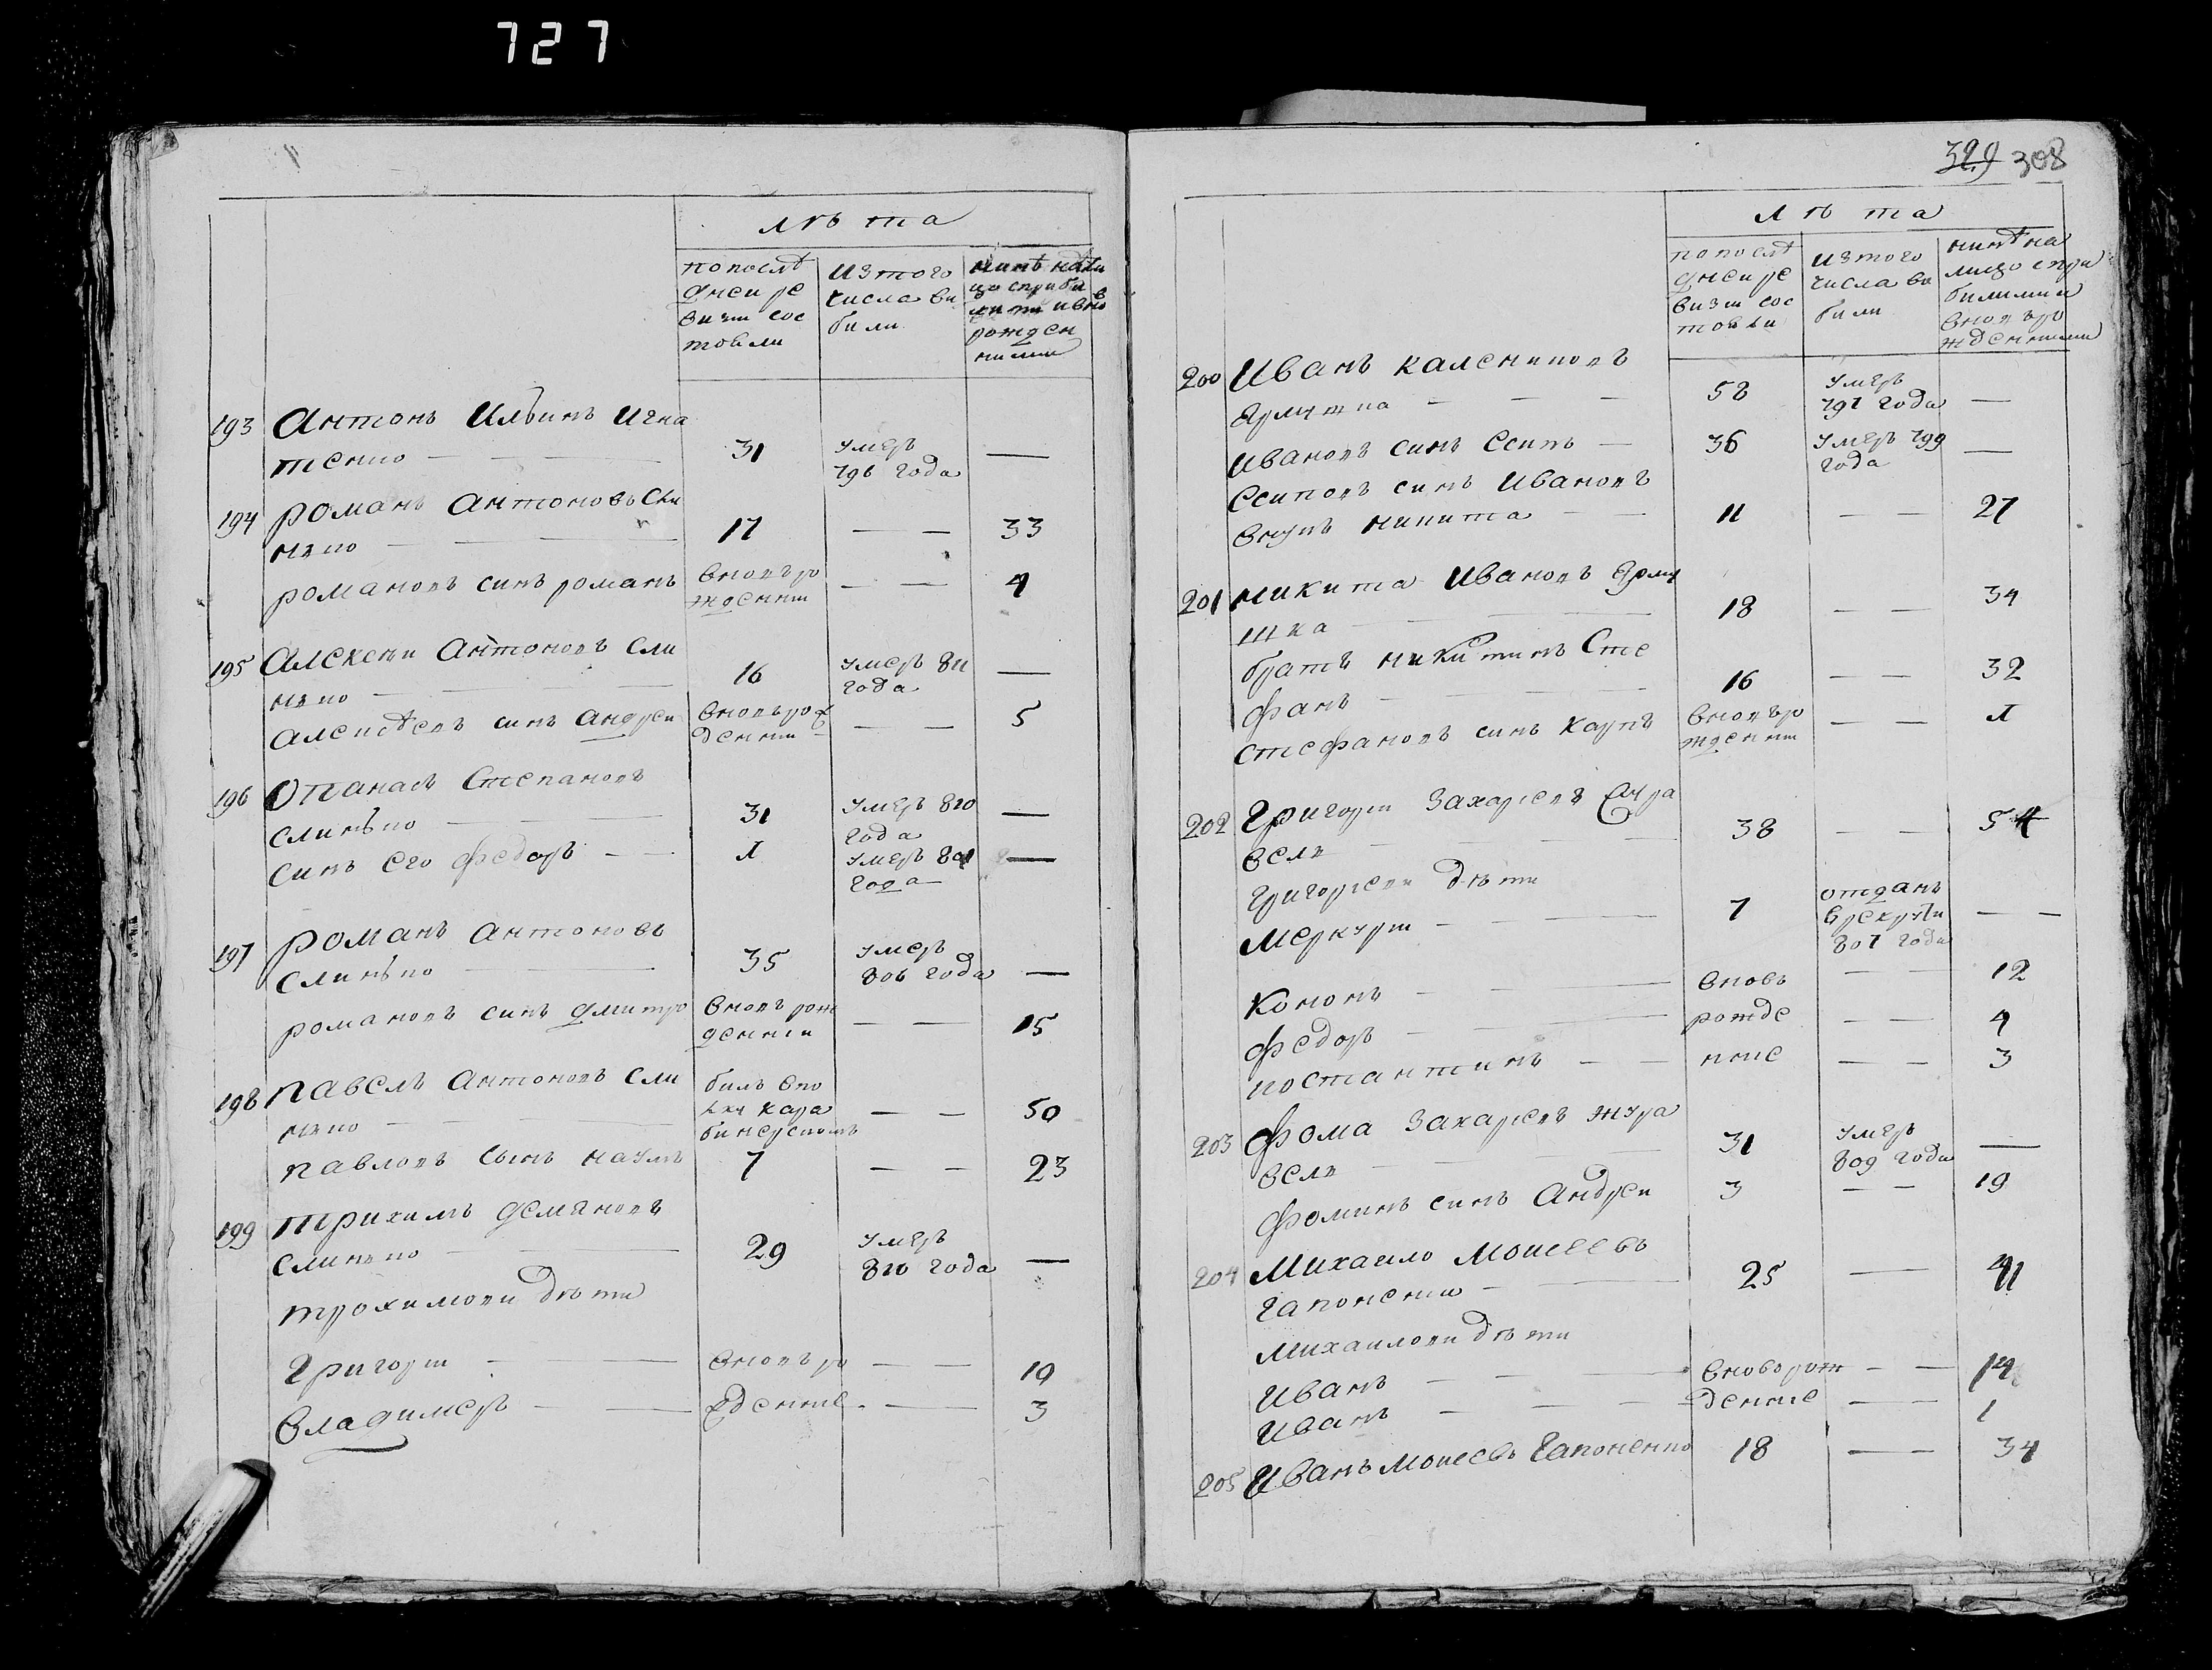 727
лѣта
попослѣ
днеи ре
визіи сос
тояли
изтого
числа вы
были
нинѣ нали
цо сприбы
лыми ивно
рожден
ными
193 Антонъ Ильинъ Игна
тенко 31 умеръ
796 года —
194 романъ антоновъ Сли
нко 17 — — 33
романовъ синъ романъ вновъ ро
жденній — — 4
195 Алексѣи Антоновъ Сли
нко 16 умеръ 811
года —
алексѣевъ синъ андреи вновъ рож
денніи — — 5
196 Опанасъ Степановъ
слинько 31 умеръ 810
года —
синъ его федоръ — — Л умеръ 801
года —
197 романъ антоновъ
слинько 35 умеръ
806 года —
романовъ синъ дмитро вновъ рож
денніи — — 15
198 Павелъ антоновъ сли
нко былъ впо
лку кара
бинерскомъ — — 50
павловъ сынъ наумъ 7 — — 23
199 трихимъ демяновъ
слинко 29 умеръ
810 года —
трохимови дѣти
григорій — вновъ ро — — 10
владимеръ — — жденніе — — 3
329 308
лѣта
попослѣ
днеи ре
визіи сос
тояли
изтого
числа вы
были
нинѣ на
лицо спри
былими и
вновъ ро
жденними
200 Иванъ калениковъ
Ярмушка — — — 58 умеръ
791 года —
ивановъ синъ Есипъ — 36 умеръ 799
года —
Есиповъ синъ Ивановъ
внукъ никита — — 11 — — 27
201 никита Ивановъ Ярму
шка 18 — — 34
братъ никитинъ Сте
фанъ — 16 — — 32
стефановъ синъ карпъ вновъ ро
жденніи — — Л
202 Григорій Захаріевъ Жура
вель 38 — — 54
григоріеви дѣти
Меркурій 7 отданъ
врекруты
807 года — —
Кононъ вновъ — — 12
федоръ рожде — — 4
костантинъ — — нніе — — 3
203 Фома Захаріевъ жура
вель 31 умеръ
809 года —
фоминъ синъ Андреи 3 — — 19
204 Михаило Моисеевъ
гапоненко 25 — 41
михаилови дѣти
Иванъ вновъ рож — — 14
Иванъ денніе — — 1
205 Иванъ моисеевъ Гапоненко 18 — — 34